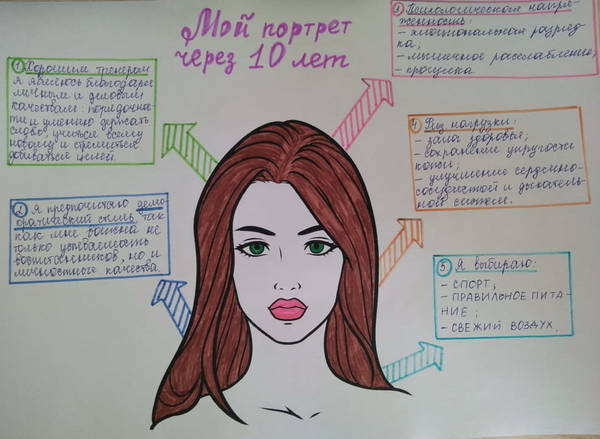 Мой портрет
через 10 лет
1 Хорошим тренером
я являюсь благодаря
личным и деловым
качествам: порядочнос-
ти и умению держать
слово, учиться всему
новому и стремиться
добиваться целей.
2 Я предпочитаю демо-
кратический стиль, так
как мне важна не
только успеваемость
воспитанников, но и
личностные качества.
3 Психологическая напря-
женность:
- эмоциональная разряд-
ка;
- мышечное расслабление;
- прогулка
4 Физ. нагрузки:
- залог здоровья;
- сохранение упругости
кожи;
- улучшению сердечно-
сосудистой и дыхатель-
ной системе.
5 Я выбираю:
- СПОРТ;
- ПРАВИЛЬНОЕ ПИТА-
НИЕ;
- СВЕЖИЙ ВОЗДУХ.